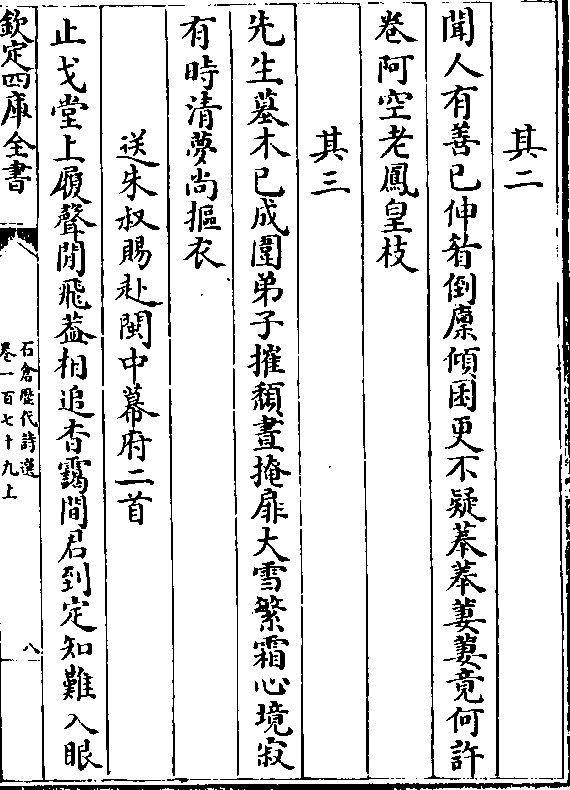 其二
聞人有善已伸眉倒廪傾囷更不疑菶菶萋萋竟何許
卷阿空老鳳皇枝
其三
先生墓木已成圍弟子摧頽晝掩扉大雪繁霜心境寂
有時清夢尚摳衣
送朱叔賜赴閩中幕府二首
止戈堂上履聲閒飛葢相追杳靄間君到定知難入眼
欽定四庫全書
石倉歴代詩選
卷一百七十九上
八